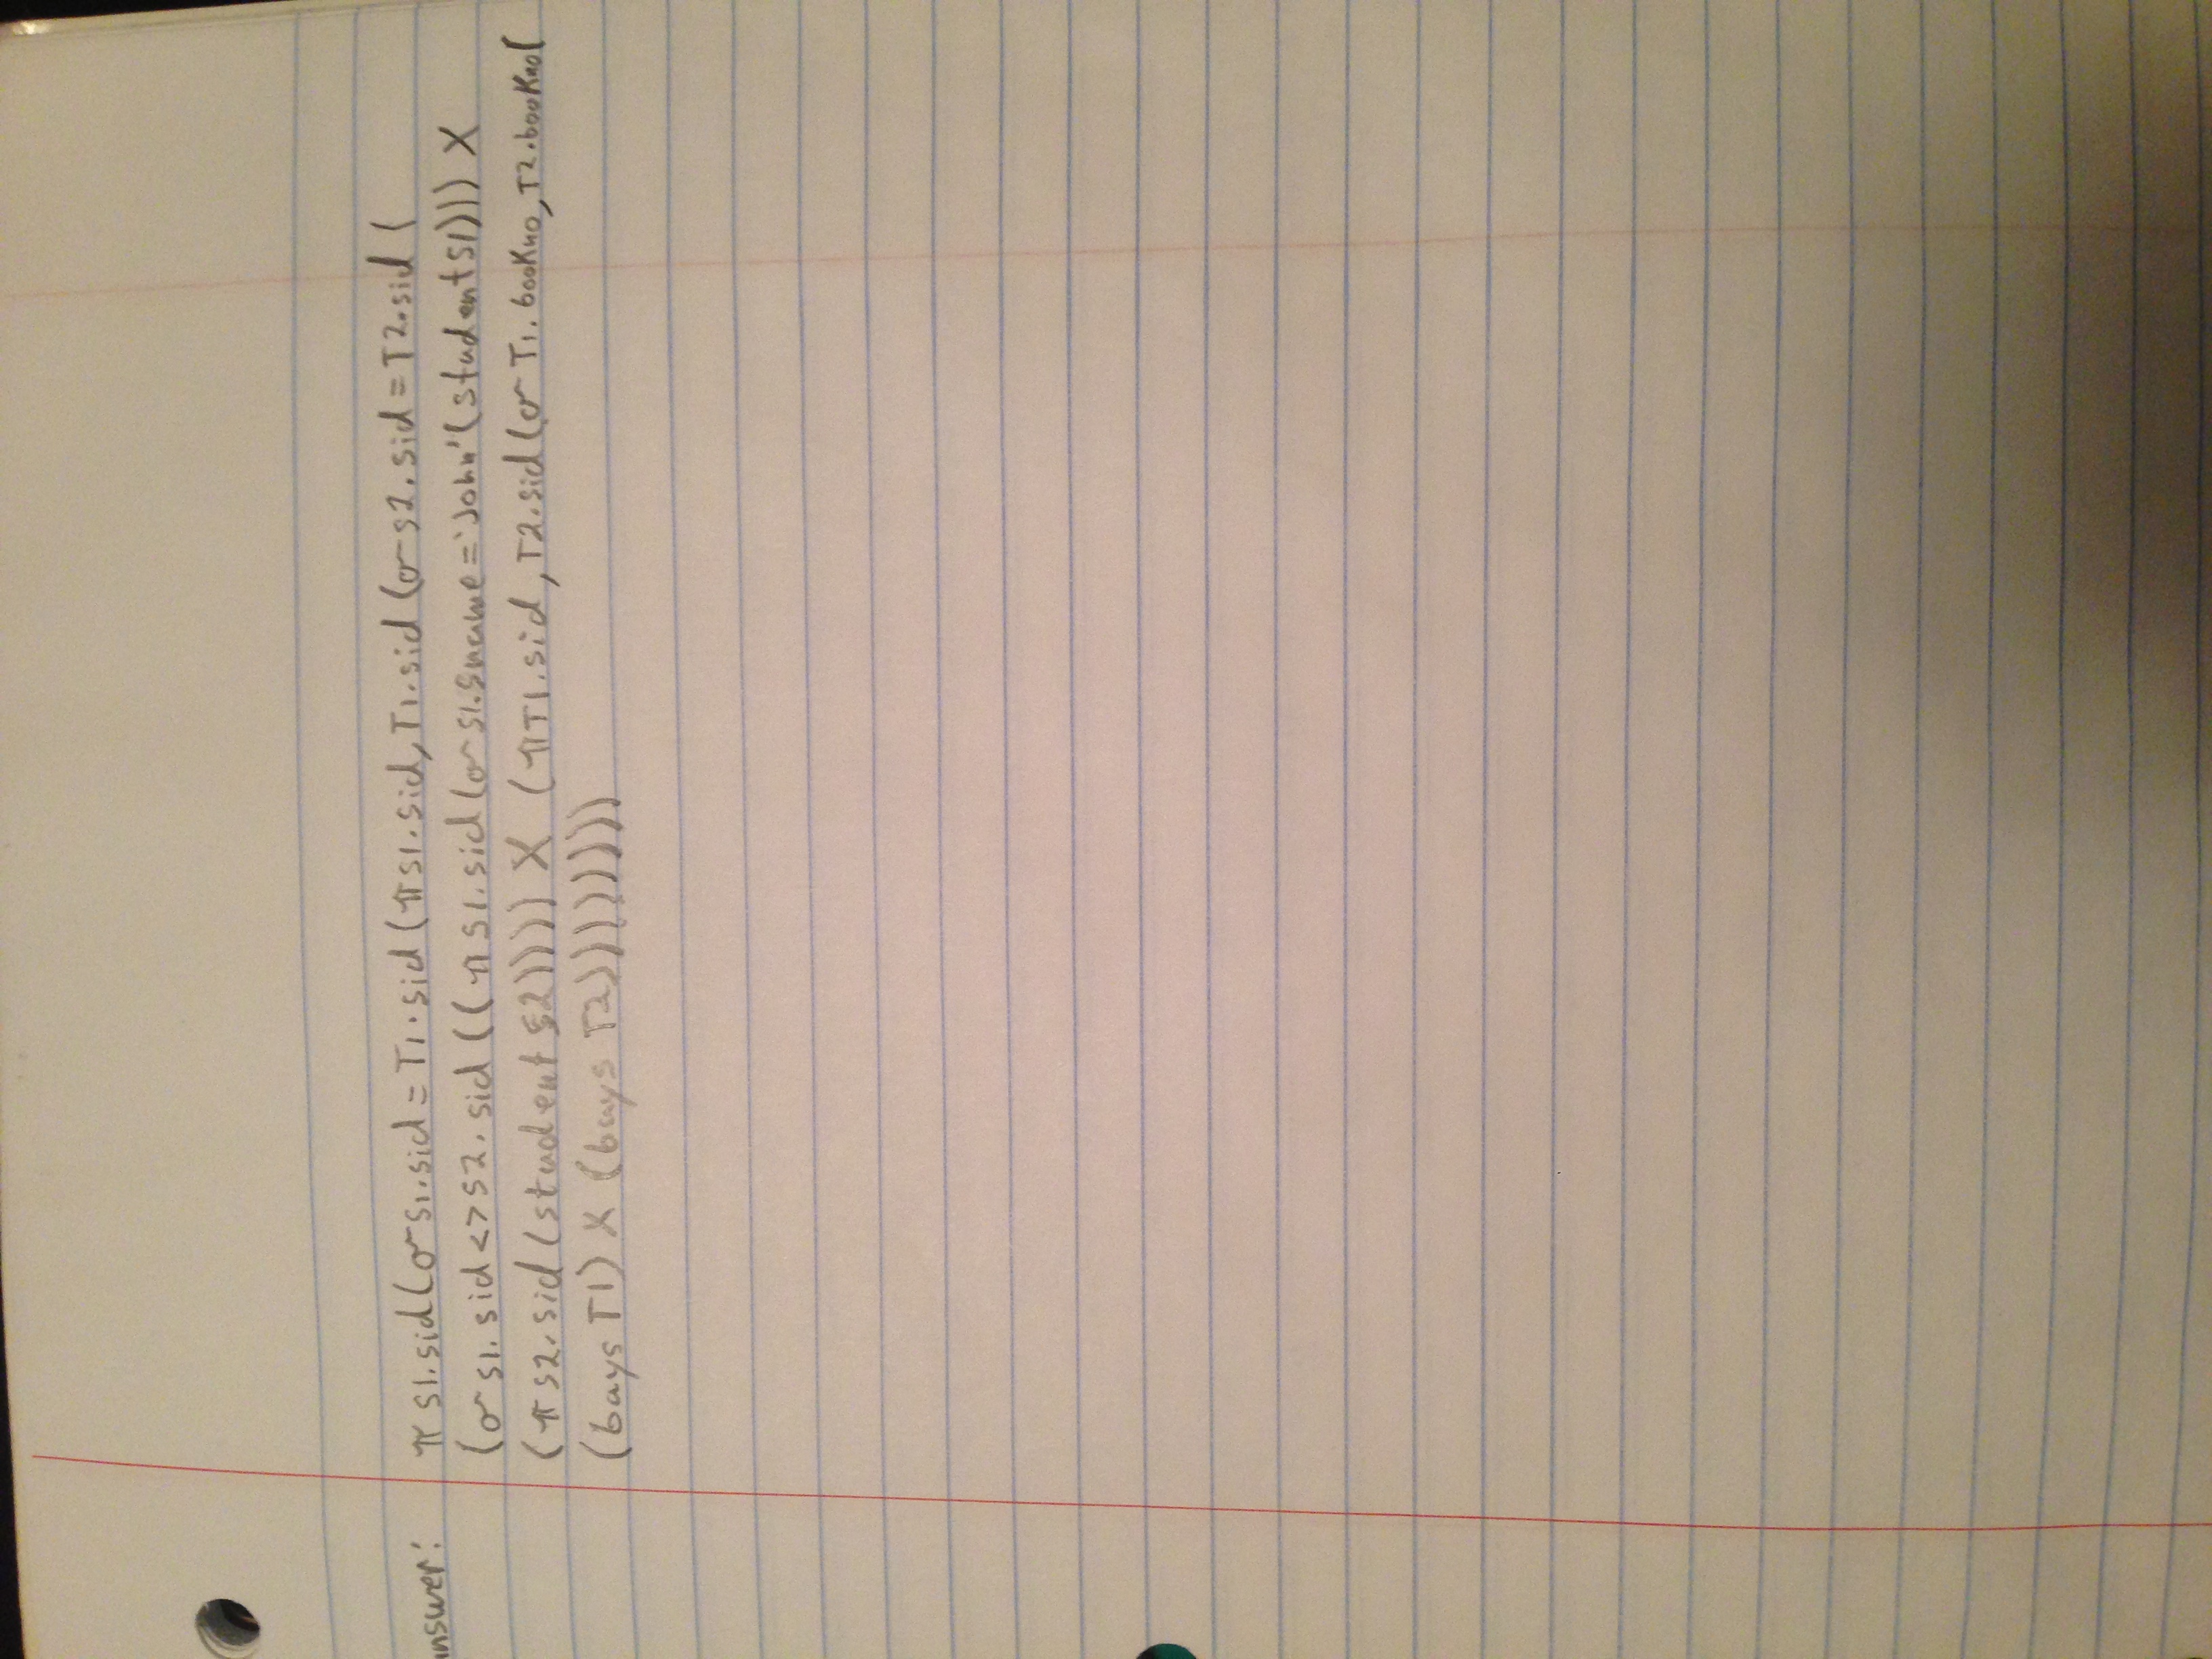 nswer: π s1.sid(σ s1.sid = T1.sid (π s1.sid, T1.sid (σ s2.sid = T2.sid (
(σ s1.sid <> s2.sid ((π s1.sid (σ s1.sname = 'John' (student s1))) X
(π s2.sid (student s2)))) X (π T1.sid, T2.sid (σ T1.bookno, T2.bookno(
(buys T1) X (buys T2)))))))))